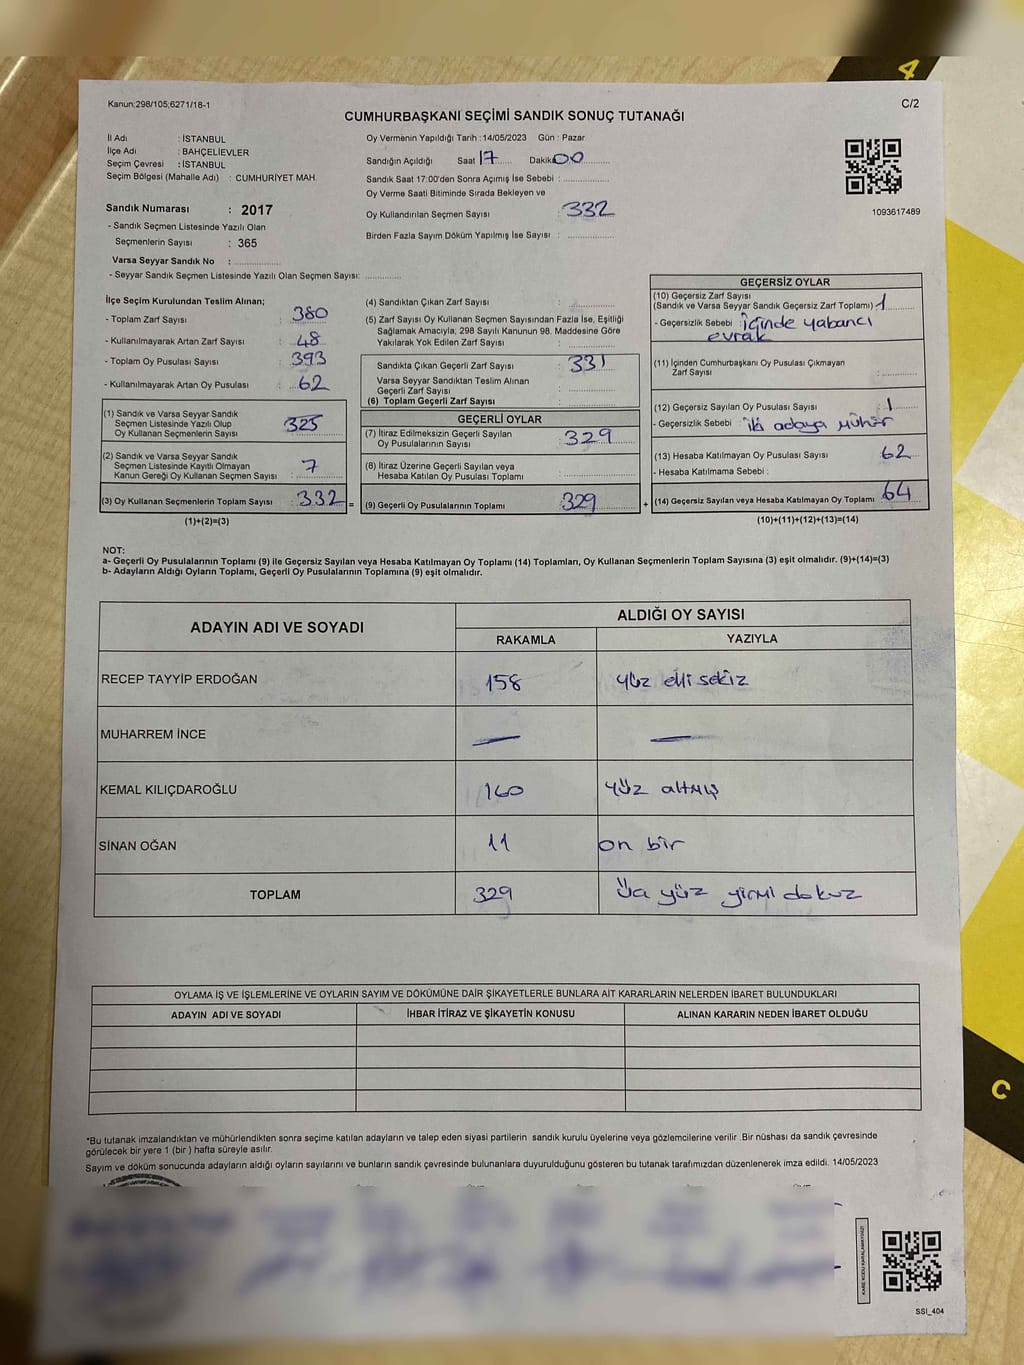 Kanun;298/105;6271/18-1
C/2
CUMHURBAŞKANI SEÇİMİ SANDIK SONUÇ TUTANAĞI
İl Adı : İSTANBUL
İlçe Adı : BAHÇELİEVLER
Seçim Çevresi : İSTANBUL
Seçim Bölgesi (Mahalle Adı) : CUMHURİYET MAH.
Sandık Numarası : 2017
- Sandık Seçmen Listesinde Yazılı Olan
Seçmenlerin Sayısı : 365
Varsa Seyyar Sandık No :
- Seyyar Sandık Seçmen Listesinde Yazılı Olan Seçmen Sayısı:
Oy Vermenin Yapıldığı Tarih : 14/05/2023 Gün : Pazar
Sandığın Açıldığı Saat 17 Dakika 00
Sandık Saat 17:00'den Sonra Açımış İse Sebebi :
Oy Verme Saati Bitiminde Sırada Bekleyen ve
Oy Kullandırılan Seçmen Sayısı : 332
Birden Fazla Sayım Döküm Yapılmış İse Sayısı :
1093617489
İlçe Seçim Kurulundan Teslim Alınan;
- Toplam Zarf Sayısı : 380
- Kullanılmayarak Artan Zarf Sayısı : 48
- Toplam Oy Pusulası Sayısı : 393
- Kullanılmayarak Artan Oy Pusulası : 62
(1) Sandık ve Varsa Seyyar Sandık
Seçmen Listesinde Yazılı Olup
Oy Kullanan Seçmenlerin Sayısı : 325
(2) Sandık ve Varsa Seyyar Sandık
Seçmen Listesinde Kayıtlı Olmayan
Kanun Gereği Oy Kullanan Seçmen Sayısı : 7
(3) Oy Kullanan Seçmenlerin Toplam Sayısı : 332 =
(1)+(2)=(3)
(4) Sandıktan Çıkan Zarf Sayısı :
(5) Zarf Sayısı Oy Kullanan Seçmen Sayısından Fazla İse, Eşitliği
Sağlamak Amacıyla; 298 Sayılı Kanunun 98. Maddesine Göre
Yakılarak Yok Edilen Zarf Sayısı :
Sandıkta Çıkan Geçerli Zarf Sayısı : 331
Varsa Seyyar Sandıktan Teslim Alınan
Geçerli Zarf Sayısı :
(6) Toplam Geçerli Zarf Sayısı :
GEÇERLİ OYLAR
(7) İtiraz Edilmeksizin Geçerli Sayılan
Oy Pusulasının Sayısı : 329
(8) İtiraz Üzerine Geçerli Sayılan veya
Hesaba Katılan Oy Pusulası Toplamı :
(9) Geçerli Oy Pusulalarının Toplamı : 329 +
GEÇERSİZ OYLAR
(10) Geçersiz Zarf Sayısı
(Sandık ve Varsa Seyyar Sandık Geçersiz Zarf Toplamı) 1
- Geçersizlik Sebebi : içinde yabancı
evrak
(11) İçinden Cumhurbaşkanı Oy Pusulası Çıkmayan
Zarf Sayısı :
(12) Geçersiz Sayılan Oy Pusulası Sayısı : 1
- Geçersizlik Sebebi : iki adaya mühür
(13) Hesaba Katılmayan Oy Pusulası Sayısı : 62
- Hesaba Katılmama Sebebi :
(14) Geçersiz Sayılan veya Hesaba Katılmayan Oy Toplamı : 64
(10)+(11)+(12)+(13)=(14)
NOT:
a- Geçerli Oy Pusulalarının Toplamı (9) ile Geçersiz Sayılan veya Hesaba Katılmayan Oy Toplamı (14) Toplamları, Oy Kullanan Seçmenlerin Toplam Sayısına (3) eşit olmalıdır. (9)+(14)=(3)
b- Adayların Aldığı Oyların Toplamı, Geçerli Oy Pusulalarının Toplamına (9) eşit olmalıdır.
ADAYIN ADI VE SOYADI
ALDIĞI OY SAYISI
RAKAMLA YAZIYLA
RECEP TAYYİP ERDOĞAN 158 yüz elli sekiz
MUHARREM İNCE — —
KEMAL KILIÇDAROĞLU 160 yüz altmış
SİNAN OĞAN 11 on bir
TOPLAM 329 Üç yüz yirmi dokuz
OYLAMA İŞ VE İŞLEMLERİNE VE OYLARIN SAYIM VE DÖKÜMÜNE DAİR ŞİKAYETLERLE BUNLARA AİT KARARLARIN NELERDEN İBARET BULUNDUKLARI
ADAYIN ADI VE SOYADI İHBAR İTİRAZ VE ŞİKAYETİN KONUSU ALINAN KARARIN NEDEN İBARET OLDUĞU
*Bu tutanak imzalandıktan ve mühürlendikten sonra seçime katılan adayların ve talep eden siyasi partilerin sandık kurulu üyelerine veya gözlemcilerine verilir .Bir nüshası da sandık çevresinde
görülecek bir yere 1 (bir ) hafta süreyle asılır.
Sayım ve döküm sonucunda adayların aldığı oyların sayılarını ve bunların sandık çevresinde bulunanlara duyurulduğunu gösteren bu tutanak tarafımızdan düzenlenerek imza edildi. 14/05/2023
KARE KODU KARALAMAYINIZ!
SSİ_404
4
C